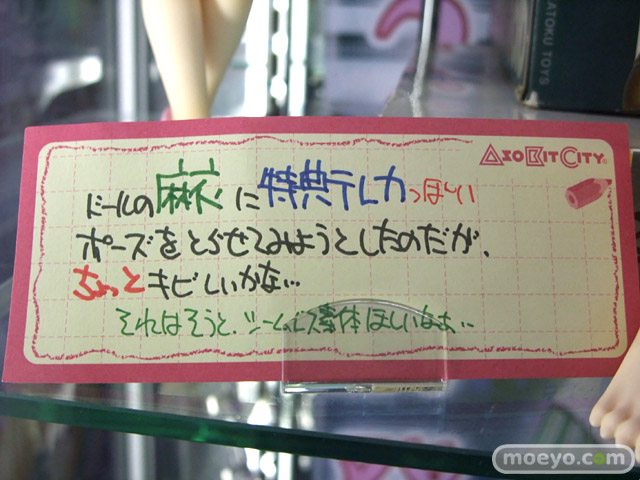 ATOKU TOYS
ASOBIT CITY
ドールの麻衣に特典テレカっぽい
ポーズをとらせてみようとしたのだが、
ちょっとキビしいかな…
それはそうと、シームレス素体ほしいなぁ…
moeyo.com